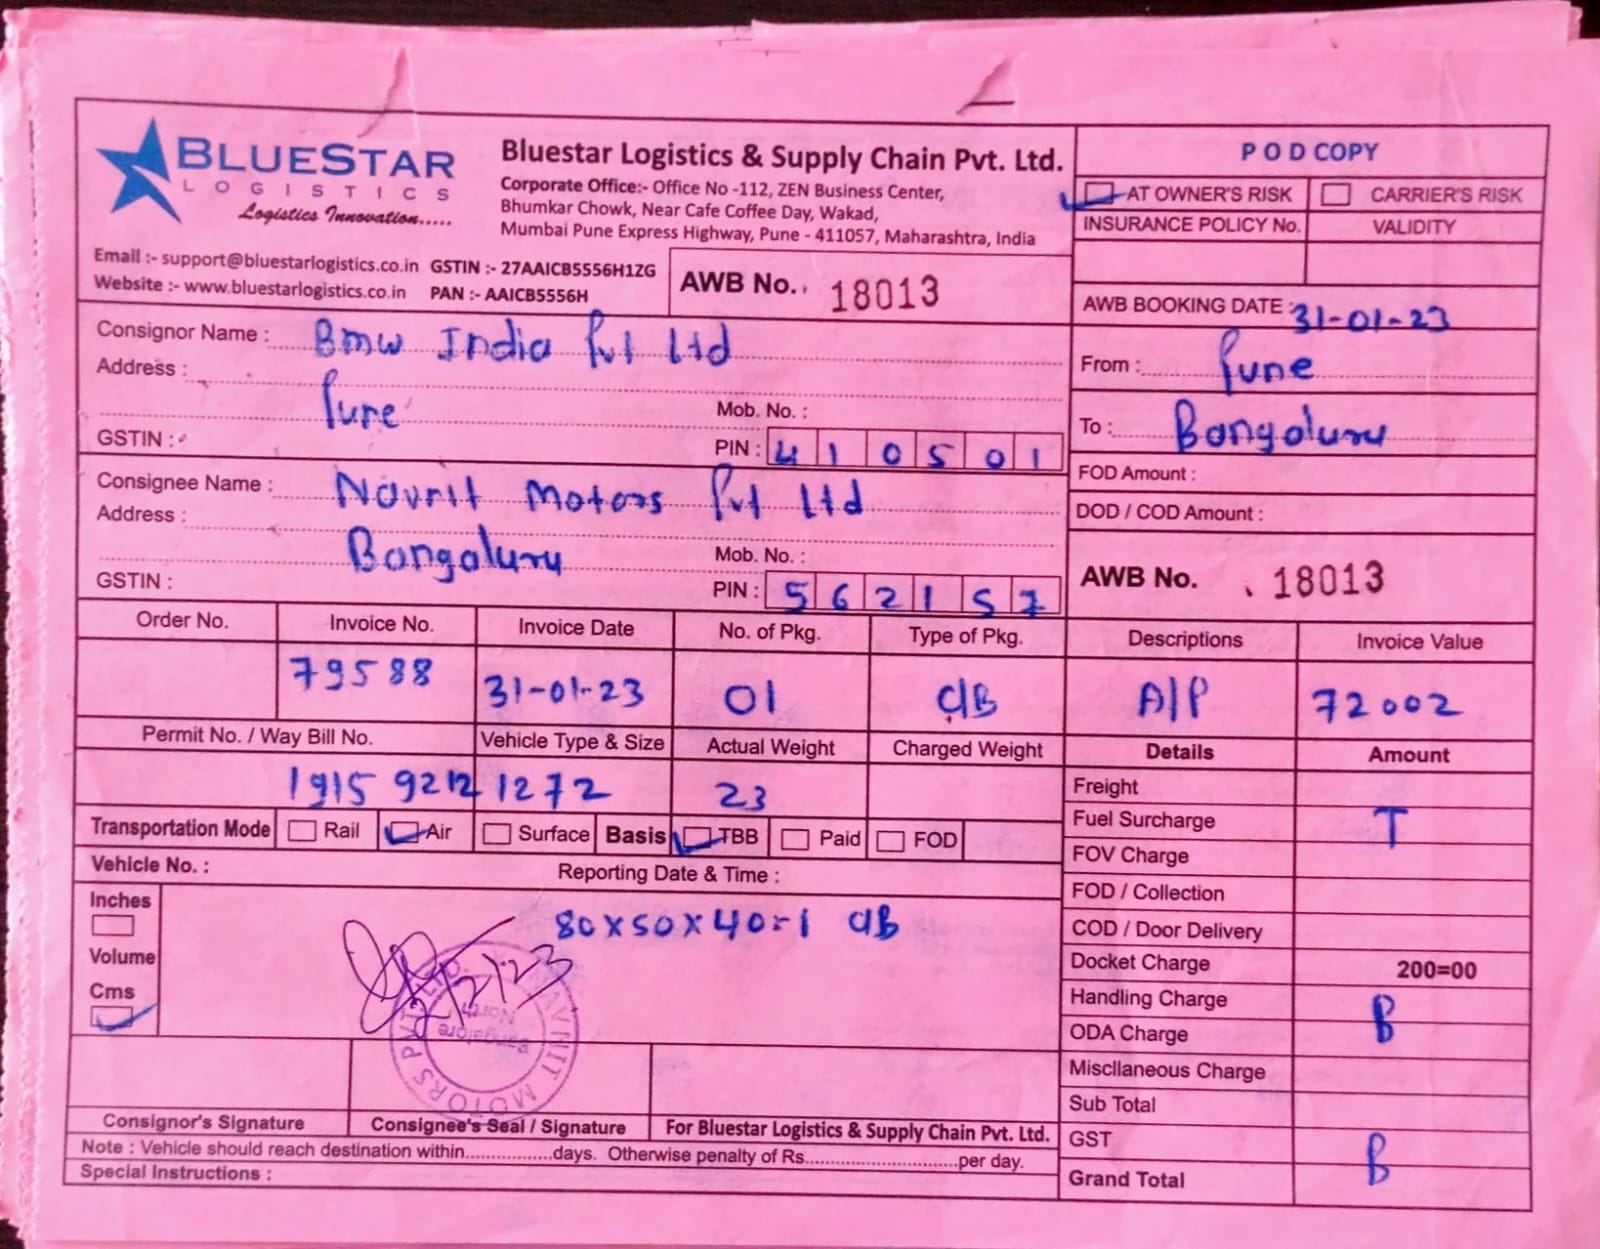 BLUESTAR
LOGISTICS
Logistics Innovation.....
Bluestar Logistics & Supply Chain Pvt. Ltd.
Corporate Office:- Office No -112, ZEN Business Center,
Bhumkar Chowk, Near Cafe Coffee Day, Wakad,
Mumbai Pune Express Highway, Pune - 411057, Maharashtra, India
Email :- support@bluestarlogistics.co.in GSTIN :- 27AAICB5556H1ZG
Website :- www.bluestarlogistics.co.in PAN :- AAICB5556H
AWB No. 18013
P O D COPY
AT OWNER'S RISK CARRIER'S RISK
INSURANCE POLICY No. VALIDITY
AWB BOOKING DATE : 31-01-23
From : Pune
To : Bangaluru
FOD Amount :
DOD / COD Amount :
AWB No. 18013
Consignor Name : Bmw India Pvt Ltd
Address : Pune
Mob. No. :
GSTIN : PIN : 410501
Consignee Name : Navnit Motors Pvt Ltd
Address : Bangaluru
Mob. No. :
GSTIN : PIN : 562157
Order No. Invoice No. Invoice Date No. of Pkg. Type of Pkg. Descriptions Invoice Value
79588 31-01-23 01 C/B A/P 72002
Permit No. / Way Bill No. Vehicle Type & Size Actual Weight Charged Weight Details Amount
1915 9212 1272 23
Transportation Mode Rail Air Surface Basis TBB Paid FOD
Vehicle No. : Reporting Date & Time :
Inches
Volume
Cms
80x50x40=1 C/B
2/2/23
NAVNIT MOTORS PVT. LTD.
Bangalore
North
Freight
Fuel Surcharge T
FOV Charge
FOD / Collection
COD / Door Delivery
Docket Charge 200=00
Handling Charge B
ODA Charge
Miscllaneous Charge
Sub Total
GST B
Grand Total
Consignor's Signature Consignee's Seal / Signature For Bluestar Logistics & Supply Chain Pvt. Ltd.
Note : Vehicle should reach destination within.................days. Otherwise penalty of Rs..............................per day.
Special Instructions :